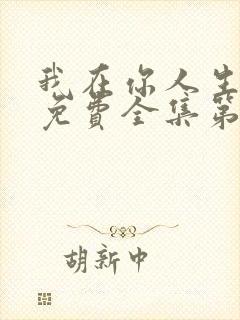 我在你人生
免费全集第
胡新中